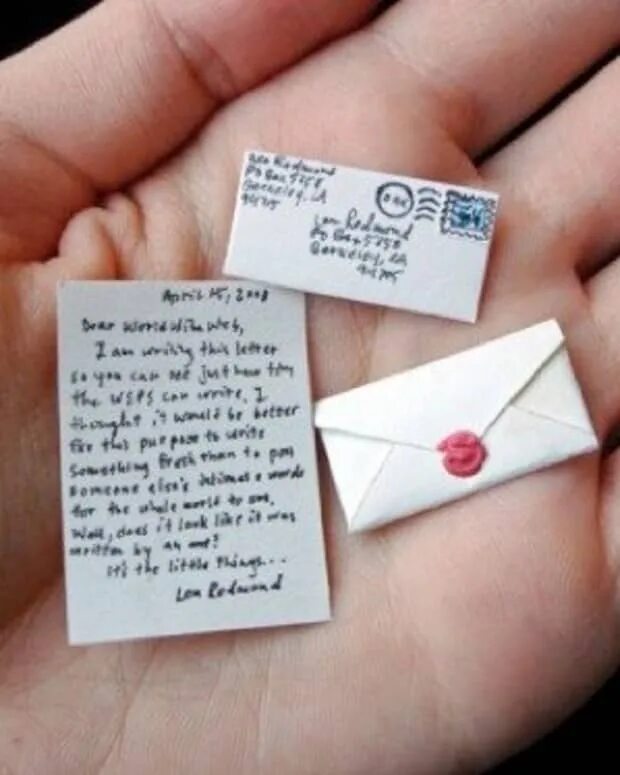 Lea Redmond
PO Box 5258
Berkeley, CA
94705
Lea Redmond
PO Box 5258
Berkeley, CA
94705
April 15, 2008
Dear World Wide Web,
I am writing this letter
so you can see just how tiny
the WSPS can write. I
thought it would be better
for this purpose to write
something fresh than to post
someone else's intimate words
for the whole world to see.
Well, does it look like it was
written by an
It's the little things...
Lea Redmond